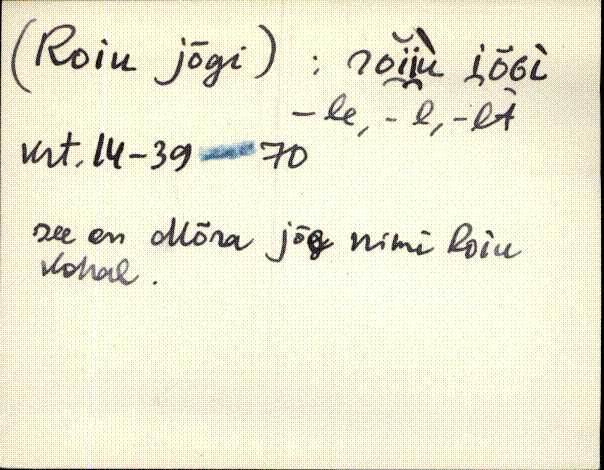 (Roiu jõgi) : roiju jõGi
-le, -l, -lt
krt. 14-39 — 70
see on Mõra jõg nimi Roiu
kohal.